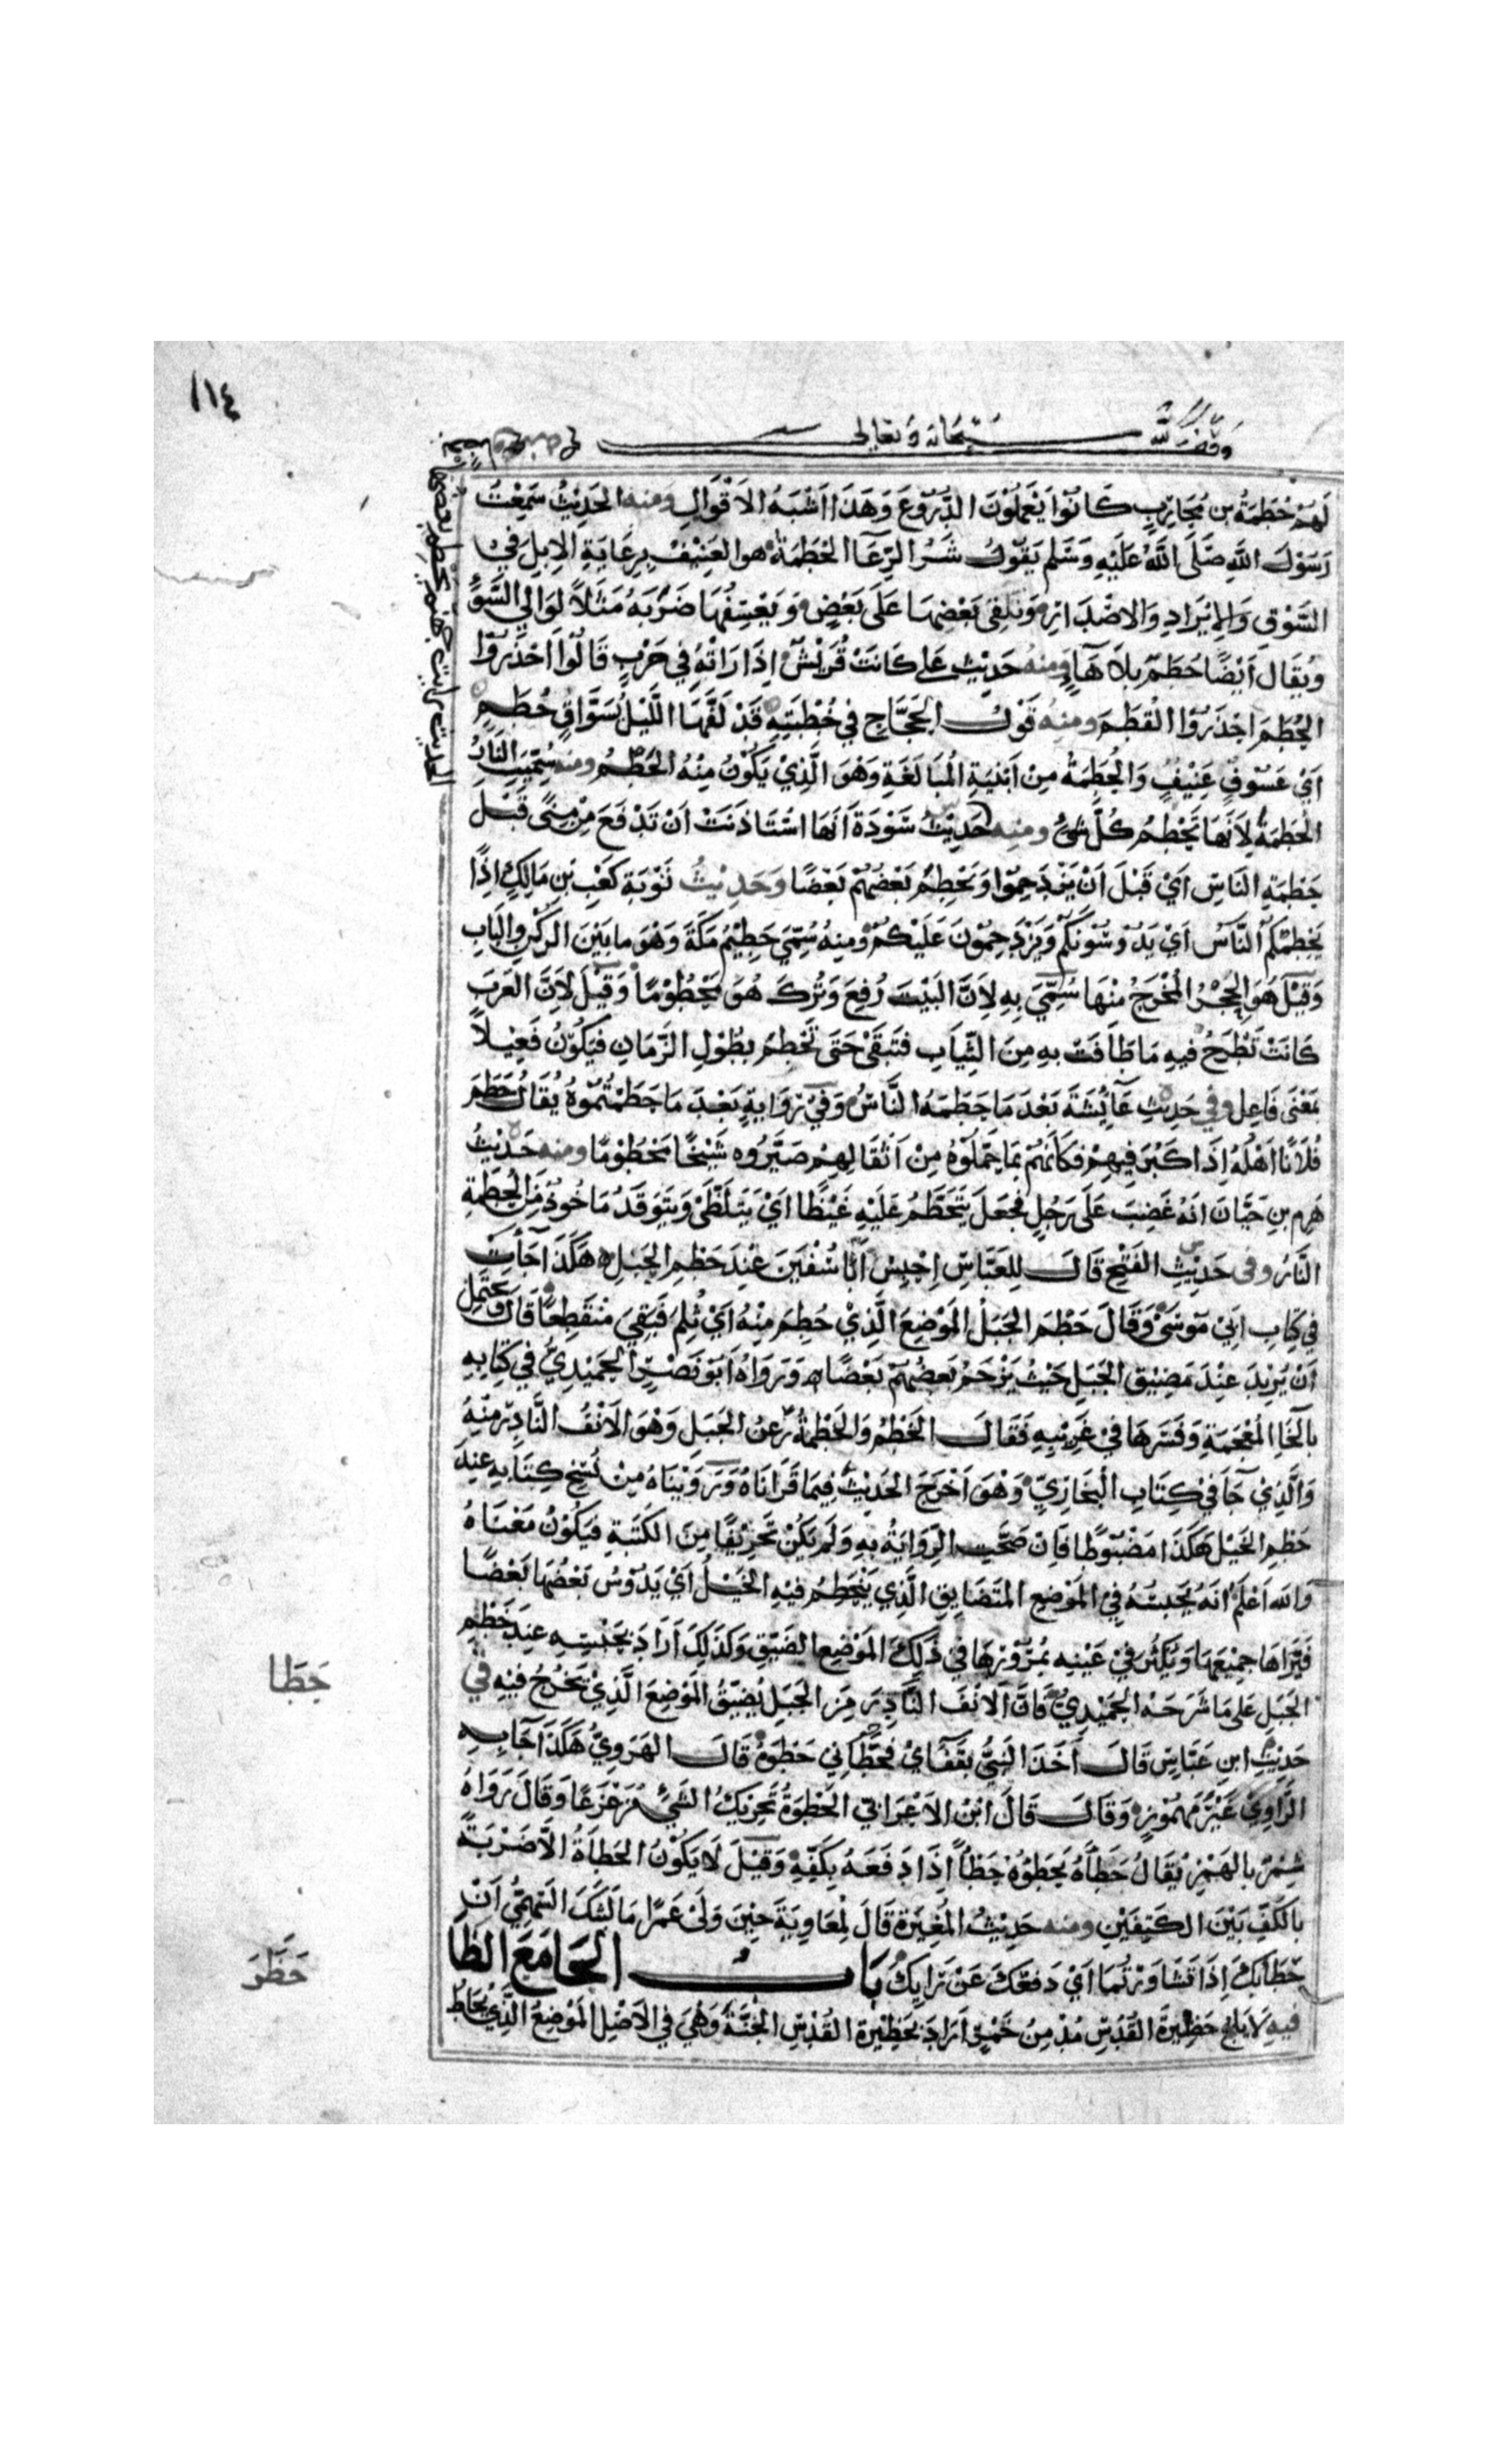 ١١٤
وقف لله سبحانه وتعالى
لَهُمْ حُطَمَةُ بن مُحَارِبٍ كَانُوا يَعْمَلُوْنَ الدُّرُوْعَ وَهَذَا اَشْبَهُ الاَقْوَالِ ومنه الحَدِيْثُ سَمِعْتُ
رَسُوْلَ اللهِ صَلَّى اللهُ عَلَيْهِ وَسَلم يَقُوْلُ شَرُّ الرِّعَآ الحُطَمَةُ هو العَنِيْفُ بِرِعَايَةِ الاِبِلِ فِيْ
السَّوْقِ وَالاِيْرَادِ وَالاِصْدَارِ وَيُلْقِى بَعْضَهَا عَلَى بَعْضٍ وَيَعْسِفُهَا ضَرَبَهُ مَثَلاً لِوَالِي السَّوْءِ
وَيُقَالُ اَيْضًا حُطَمٌ بِلاَ هَآءٍ وَمِنهُ حَدِيْثِ عَلي كَانَتْ قُرَيْشٌ اِذَا رَاَتْهُ فِي حَرْبٍ قَالُوْا اَحْذَرُوْا
الحُطَمَ احْذَرُوْا القُطَمَ وَمِنْهُ قَوْلُ الحَجَّاجِ فِي خُطْبَتِهِ قَدْ لَفَّهَا اللَّيْلُ بِسَوَّاقٍ حُطَمٍ
اَيْ عَسُوْفٍ عَنِيْفٍ وَالحُطَمَةُ مِنْ اَبْنِيَةِ المُبَالَغَةِ وَهُوَ الَّذِيْ يَكُوْنُ مِنْهُ الحَطْمُ ومنه سُمِّيَتِ النَّارُ
الحُطَمَةُ لِاَنَّهَا تَحْطِمُ كُلَّ شَيْءٍ ومنه حَدِيْثُ سَوْدَةَ اَنَّهَا اسْتَاذَنَتْ اَنْ تَدْفَعَ مِنْ مِنًى قَبْلَ
حَطْمَةِ النَّاسِ اَيْ قَبْلَ اَنْ يَزْدَحِمُوْا وَيَحْطِمُ بَعْضُهُمْ بَعْضًا وَحَدِيْثُ تَوْبَةِ كَعْبِ بْنِ مَالِكٍ اِذًا
يَحْطِمُكُمْ النَّاسُ اَيْ يَدُوْسُوْنَكُمْ وَيَزْدَحِمُوْنَ عَلَيْكُمْ وَمِنهُ سُمِّيَ حَطِيْمُ مَكَةَ وَهُوَ مَا بَيْنَ الرُّكْنِ وَالبَابِ
وَقِيْلَ هُوَ الحِجْرُ المُخْرَجُ مِنْهَا سُمِّيَ بِهِ لِاَنَّ البَيْتَ رُفِعَ وَتُرِكَ هُوَ مَحْطُوْمًا وَقِيْلَ لِاَنَّ العَرَبَ
كَانَتْ تَطْرَحُ فيهِ مَا طَافَتْ بِهِ مِنَ الثِّيَابِ فَتَبْقَىْ حَتَّى تَحْطِمُ بِطُوْلِ الزَّمَانِ فَيَكُوْنُ فَعِيْلاً
بمَعْنَى فَاعِلٍ وفي حَدِيْثِ عَآئِشَةَ بَعْدَ مَا حَطَمَهُ النَّاسُ وَفِيْ رِوَايةٍ بَعْدَ مَا حَطَمْتُمُوْهُ يُقَالُ حَطَمَ
فُلاَنًا اَهْلُهُ اِذَا كَبُرَ فِيهِمْ فَكَاَنَّهُمْ بِمَا حَمَّلُوْهُ مِنْ اَثْقَالِهِمْ صَيَّرُوه شَيْخًا مَحْطُوْمًا ومنه حَدِيْثُ
هَرِم بنِ حَيَّانَ انهُ غَضِبَ عَلَى رَجُلٍ فجَعَلَ يَتَحَطَّمُ عَلَيْهِ غَيْظًا اَيْ يَتَلَظَّىْ وَيَتَوَقَّدُ مَاخُوْذٌ مِنَ الحُطَمَةِ
النَّارُ وفى حَدِيْثِ الفَتْحِ قَالَ لِلعَبَّاسِ اِحْبِسْ اَبَا سُفْيَنَ عِنْدَ حَطْمِ الجَبَلِ هَكَذَا جَآءَتْ
فِي كِتَابِ اَبِيْ مُوْسَىْ وَقَالَ حَطْمُ الجَبَلِ المَوْضِعُ الَّذِيْ حُطِمَ مِنْهُ اَيْ ثُلِمَ فَبَقِيَ مُنْقَطِعًا قَالَ وَيَحْتَمِل
اَنْ يُرِيْدَ عِنْدَ مَضِيْقِ الجَبَلِ حَيْثُ يَزْحَمُ بَعْضُهُمْ بَعْضًا وَرَوَاهُ اَبُوْ نَصْرٍ الحُمَيْدِيُّ فِي كِتَابِهِ
بِالْخَآءِ المُعْجَمَةِ وَفَسَّرَهَا فِيْ غَرِيْبِهِ فَقَالَ الخَطْمُ وَالخَطْمَةُ رَعْنُ الجَبَلِ وَهُوَ الاَنْفُ النَّادِرُ مِنْهُ
وَالَّذِيْ جَآءَ فِيْ كِتَابِ البُخَارِيِّ وَهُوَ اَخْرَجَ الحَدِيْثَ فِيْمَا قَرَانَاهُ وَرَوَيْنَاهُ مِنْ نُسَخِ كِتَابِهِ عِنْدَ
حَطْمِ الخَيْلِ هَكَذَا مَضْبُوْطًا فَاِنْ صَحَّتِ الرِّوَايَةُ بِهِ وَلَم يَكُنْ تَحْرِيْفًا مِنَ الكَتَبَةِ فَيَكُوْنُ مَعْنَاهُ
وَاللهُ اَعْلَمُ انَهُ يَحْبِسُهُ فِيْ المَوْضِعِ المُتَضَايِقِ الَّذِي يَتَحَطَّمُ فيْهِ الخَيْلُ اَيْ يَدُوْسُ بَعْضُهَا بَعْضًا
فَيَرَاهَا جَمِيْعَهَا وَيَكْثُرُ فِيْ عَيْنِهِ بِمُرُوْرِهَا فيْ ذَلِكَ المَوْضِعِ الضَّيِّقِ وَكَذَلِكَ اَرَادَ بِحَبْسِهِ عِنْدَ حَطْمِ
الجَبَلِ عَلَى مَا شَرَحَهُ الحُمَيْدِيُّ فَاِنَّ الاَنْفَ النَّادِرَ مِنَ الجَبَلِ يُضَيِّقُ المَوْضِعَ الَّذِيْ يَخْرُجُ فيْهِ فِي
حَدِيْثِ ابنِ عَبَّاسٍ قَالَ اَخَذَ النَّبِيُّ بِقَفَايَ فَحَطَانِي حَطْوَةً قَالَ الهَرَوِيُّ هَكَذَا جَآءَ بِهِ
الرَّاوِيْ غَيْرَ مَهْمُوْزٍ وَقَالَ قَالَ ابْنُ الاَعْرَابِيّ الحَطْوَةُ تَحْرِيْكُ الشَّيْءِ مُزَعْزَعًا وَقَالَ رَوَاهُ
شِمْرٌ بالهَمْزِ يُقَالُ حَطَاَهُ يَحْطَؤُهُ حَطْاً اِذَا دَفَعَهُ بِكَفِّهِ وَقِيْلَ لاَ يَكُوْنُ الحَطْاَةُ الاَّ ضَرْبَةً
بالكَفِّ بَيْنَ الكَتِفَيْنِ ومنه حَدِيْثُ المُغِيْرَةِ قَالَ لِمُعَاوِيَةَ حِيْنَ وَلَّىْ عَمْرًا مَا لَبَّثَكَ السَّهْمِيُّ اَنْ
حَطَاَبِكَ اِذَا تَشَاوَرْتُمَا اَيْ دَفَعَكَ عَنْ رَايِكَ بَابُ الحَا مَعَ الظَا
فيهِ لاَ يَلِجُ حَظِيْرَةَ القُدْسِ مُدْمِنُ خَمْرٍ اَرَادَ بحَظِيْرَةِ القُدْسِ الجَنَّةَ وَهْيَ فِي الاَصْلِ المَوْضِعُ الَّذِيْ يُحَاطُ
حَطَا
حَظَرَ